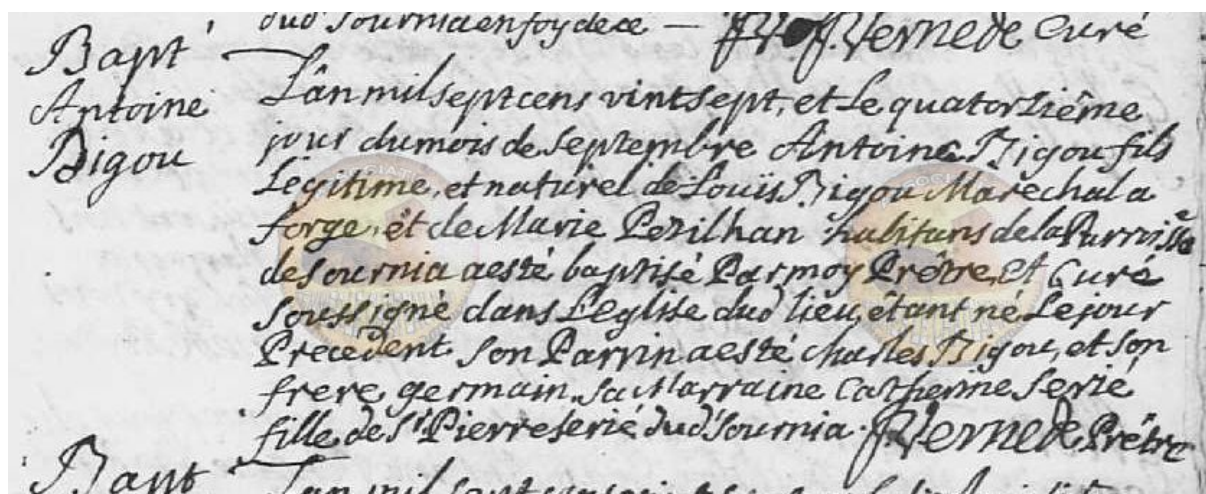 dud Sournia en foy de ce — Vernede Curé
Bapt
Antoine
Bigou
L'an mil sept cens vint sept, et le quatorsiême
jour du mois de septembre Antoine Bigou fils
Legitime, et naturel de Louïs Bigou Marechal a
forge, et de Marie Pezilhan habitans de la Parroisse
de Sournia a esté baptisé Par moy Prêtre, Et Curé
Soussigné dans L'Eglise dud lieu, étant né Le jour
Precedent. Son Parrin a esté charles Bigou, et son
frere germain, sa Marraine Catherine Serié
fille de Sr Pierre Serié dud Sournia. Vernede Prêtre
Bapt
L'an mil sept cens vint sept